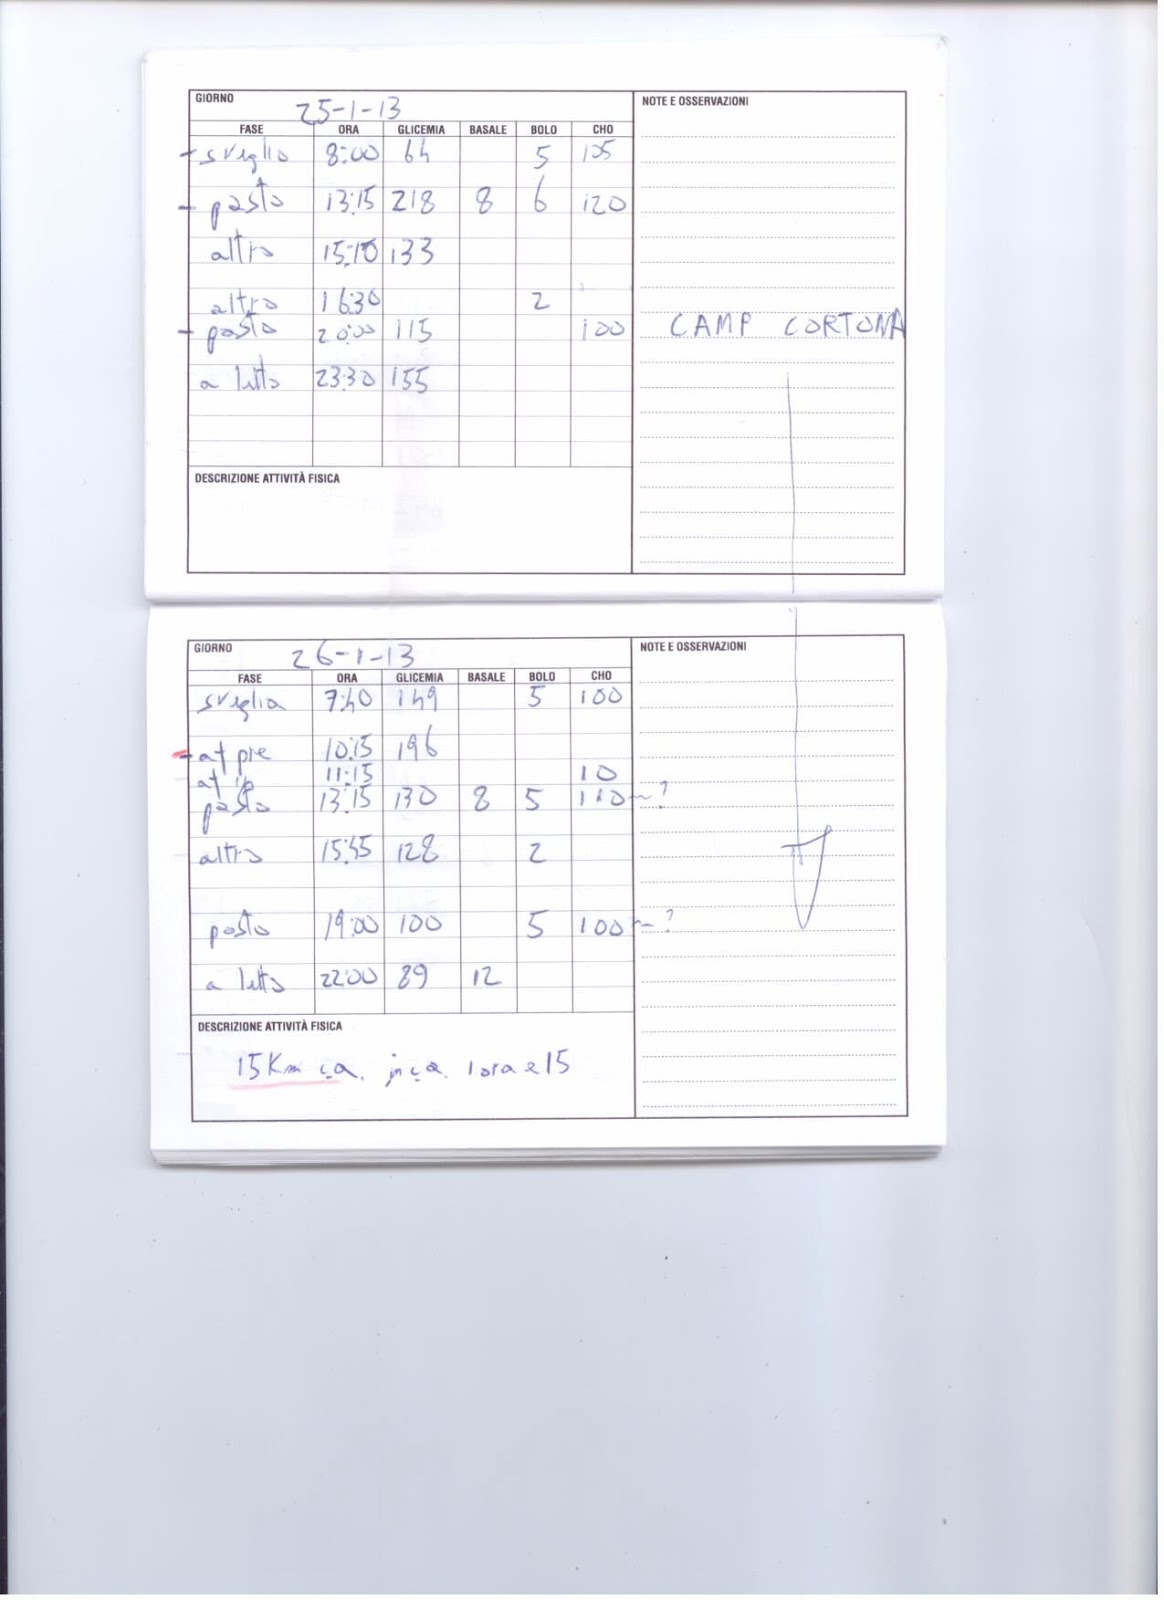 GIORNO 25-1-13 NOTE E OSSERVAZIONI
FASE ORA GLICEMIA BASALE BOLO CHO
sveglia 8:00 64 5 105
pasto 13:15 218 8 6 120
altro 15:10 133
altro 16:30 2
pasto 20:00 115 100 CAMP CORTONA
a letto 23:30 155
DESCRIZIONE ATTIVITÀ FISICA
GIORNO 26-1-13 NOTE E OSSERVAZIONI
FASE ORA GLICEMIA BASALE BOLO CHO
sveglia 7:40 149 5 100
at pre 10:15 196
at 11:15 10
pasto 13:15 130 8 5 110 ~ ?
altro 15:45 128 2
pasto 19:00 100 5 100 ~ ?
a letto 22:00 89 12
DESCRIZIONE ATTIVITÀ FISICA
15Km ca. in ca. 1 ora e 15